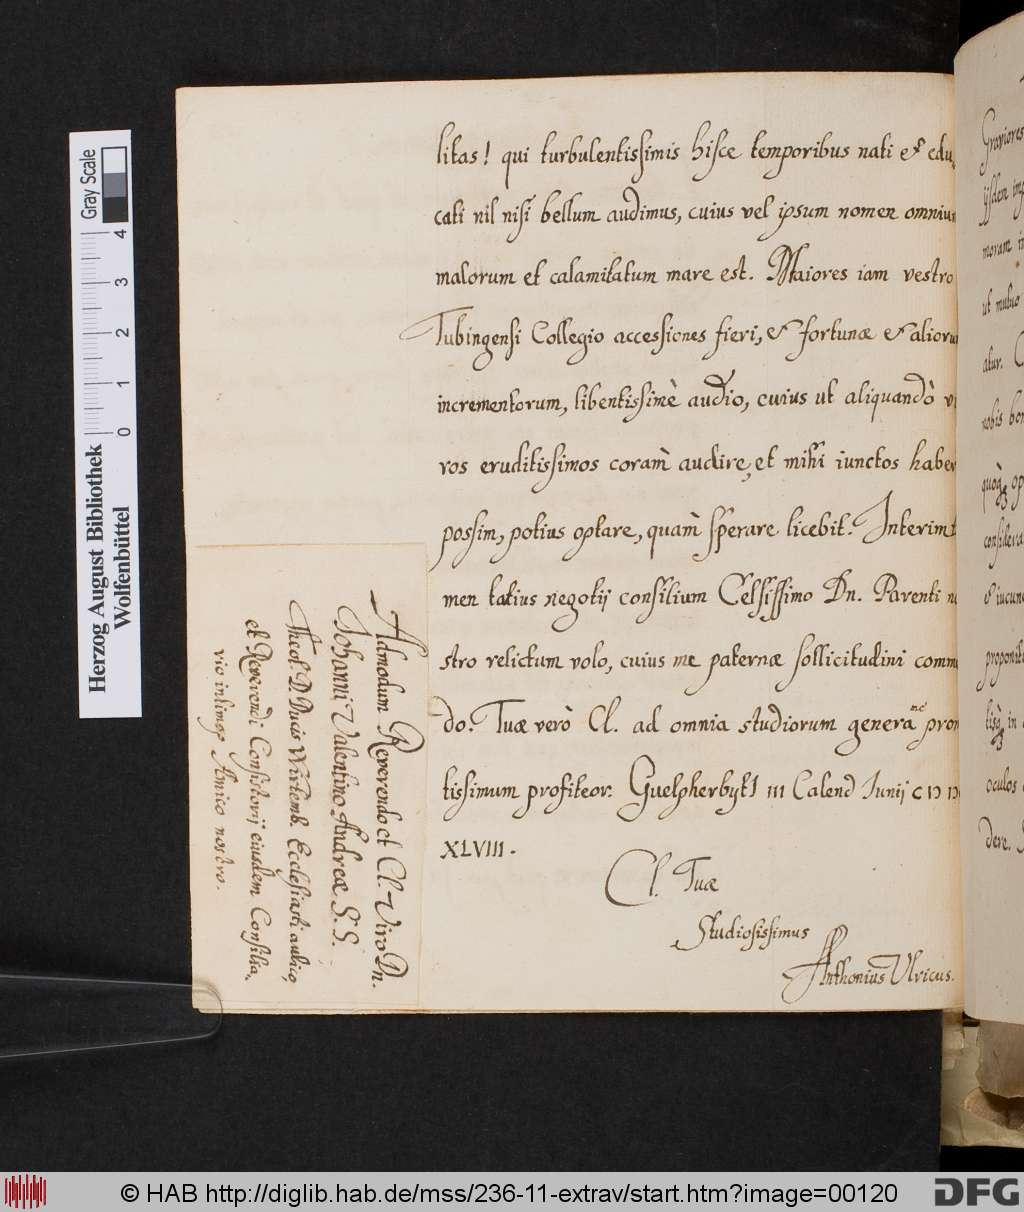 litas! qui turbulentissimis hisce temporibus nati & edu
cati nil nisi bellum audimus, cuius vel ipsum nomen omnium
malorum et calamitatum mare est. Maiores iam vestro
Tubingensi Collegio accessiones fieri, & fortunæ & aliorum
incrementorum, libentissimè audio, cuius ut aliquandò vi
ros eruditissimos coràm audire, et mihi iunctos haber
possim, potius optare, quàm sperare licebit. Interim
men totius negotij consilium Celsissimo Dn. Parenti no
stro relictum volo, cuius me paternæ sollicitudini comm
do. Tuæ verò Cl. ad omnia studiorum genera me prom
tissimum profiteor. Guelpherbyti III Calend Junij
XLVIII.
Cl. Tuæ
Studiosissimus
Anthonius Ulricus.
Admodum Reverendo et Cl. Viro Dn.
Johanni Valentino Andreæ S. S.
Theol. D. Ducis Wirtemb. Ecclesiasti aulico,
et Reverendi Consistorij eiusdem Consilia,
rio intimo, Amico nostro.
Graviores
moram in
ut mutuo
atur.
nobis bon
& iucun
oculos
dere.
Herzog August Bibliothek
Wolfenbüttel
Gray Scale
0 1 2 3 4
© HAB http://diglib.hab.de/mss/236-11-extrav/start.htm?image=00120
DFG